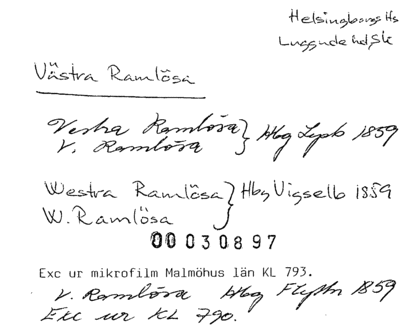 Helsingborgs Hs
Luggude hd, Sk
Västra Ramlösa
Vestra Ramlösa } Hbg Lysb 1859
V. Ramlösa
Westra Ramlösa } Hbg Vigselb 1859
W. Ramlösa
00030897
Exc ur mikrofilm Malmöhus län KL 793.
V. Ramlösa Hbg Flyttn 1859
Exc ur KL 790.